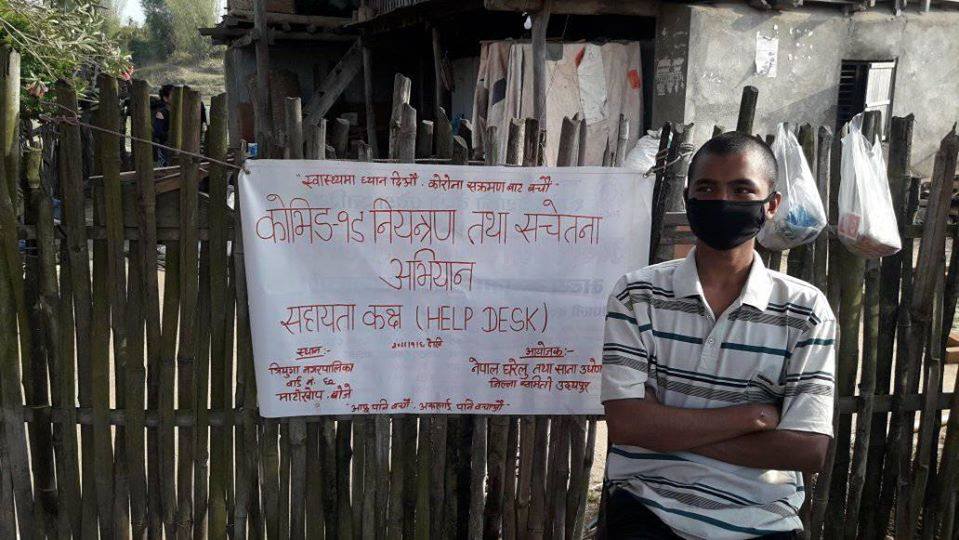 "स्वास्थ्यमा ध्यान दिऔं . कोरोना संक्रमण बाट बचौं"
कोभिड-१९ नियन्त्रण तथा सचेतना
अभियान
सहायता कक्ष (HELP DESK)
स्थान:-
त्रियुगा नगरपालिका
वार्ड नं.
आयोजक:-
नेपाल घरेलु तथा साना उद्योग
जिल्ला समिति उदयपुर
"आफू पनि बचौं . अरूलाई पनि बचाऔं"